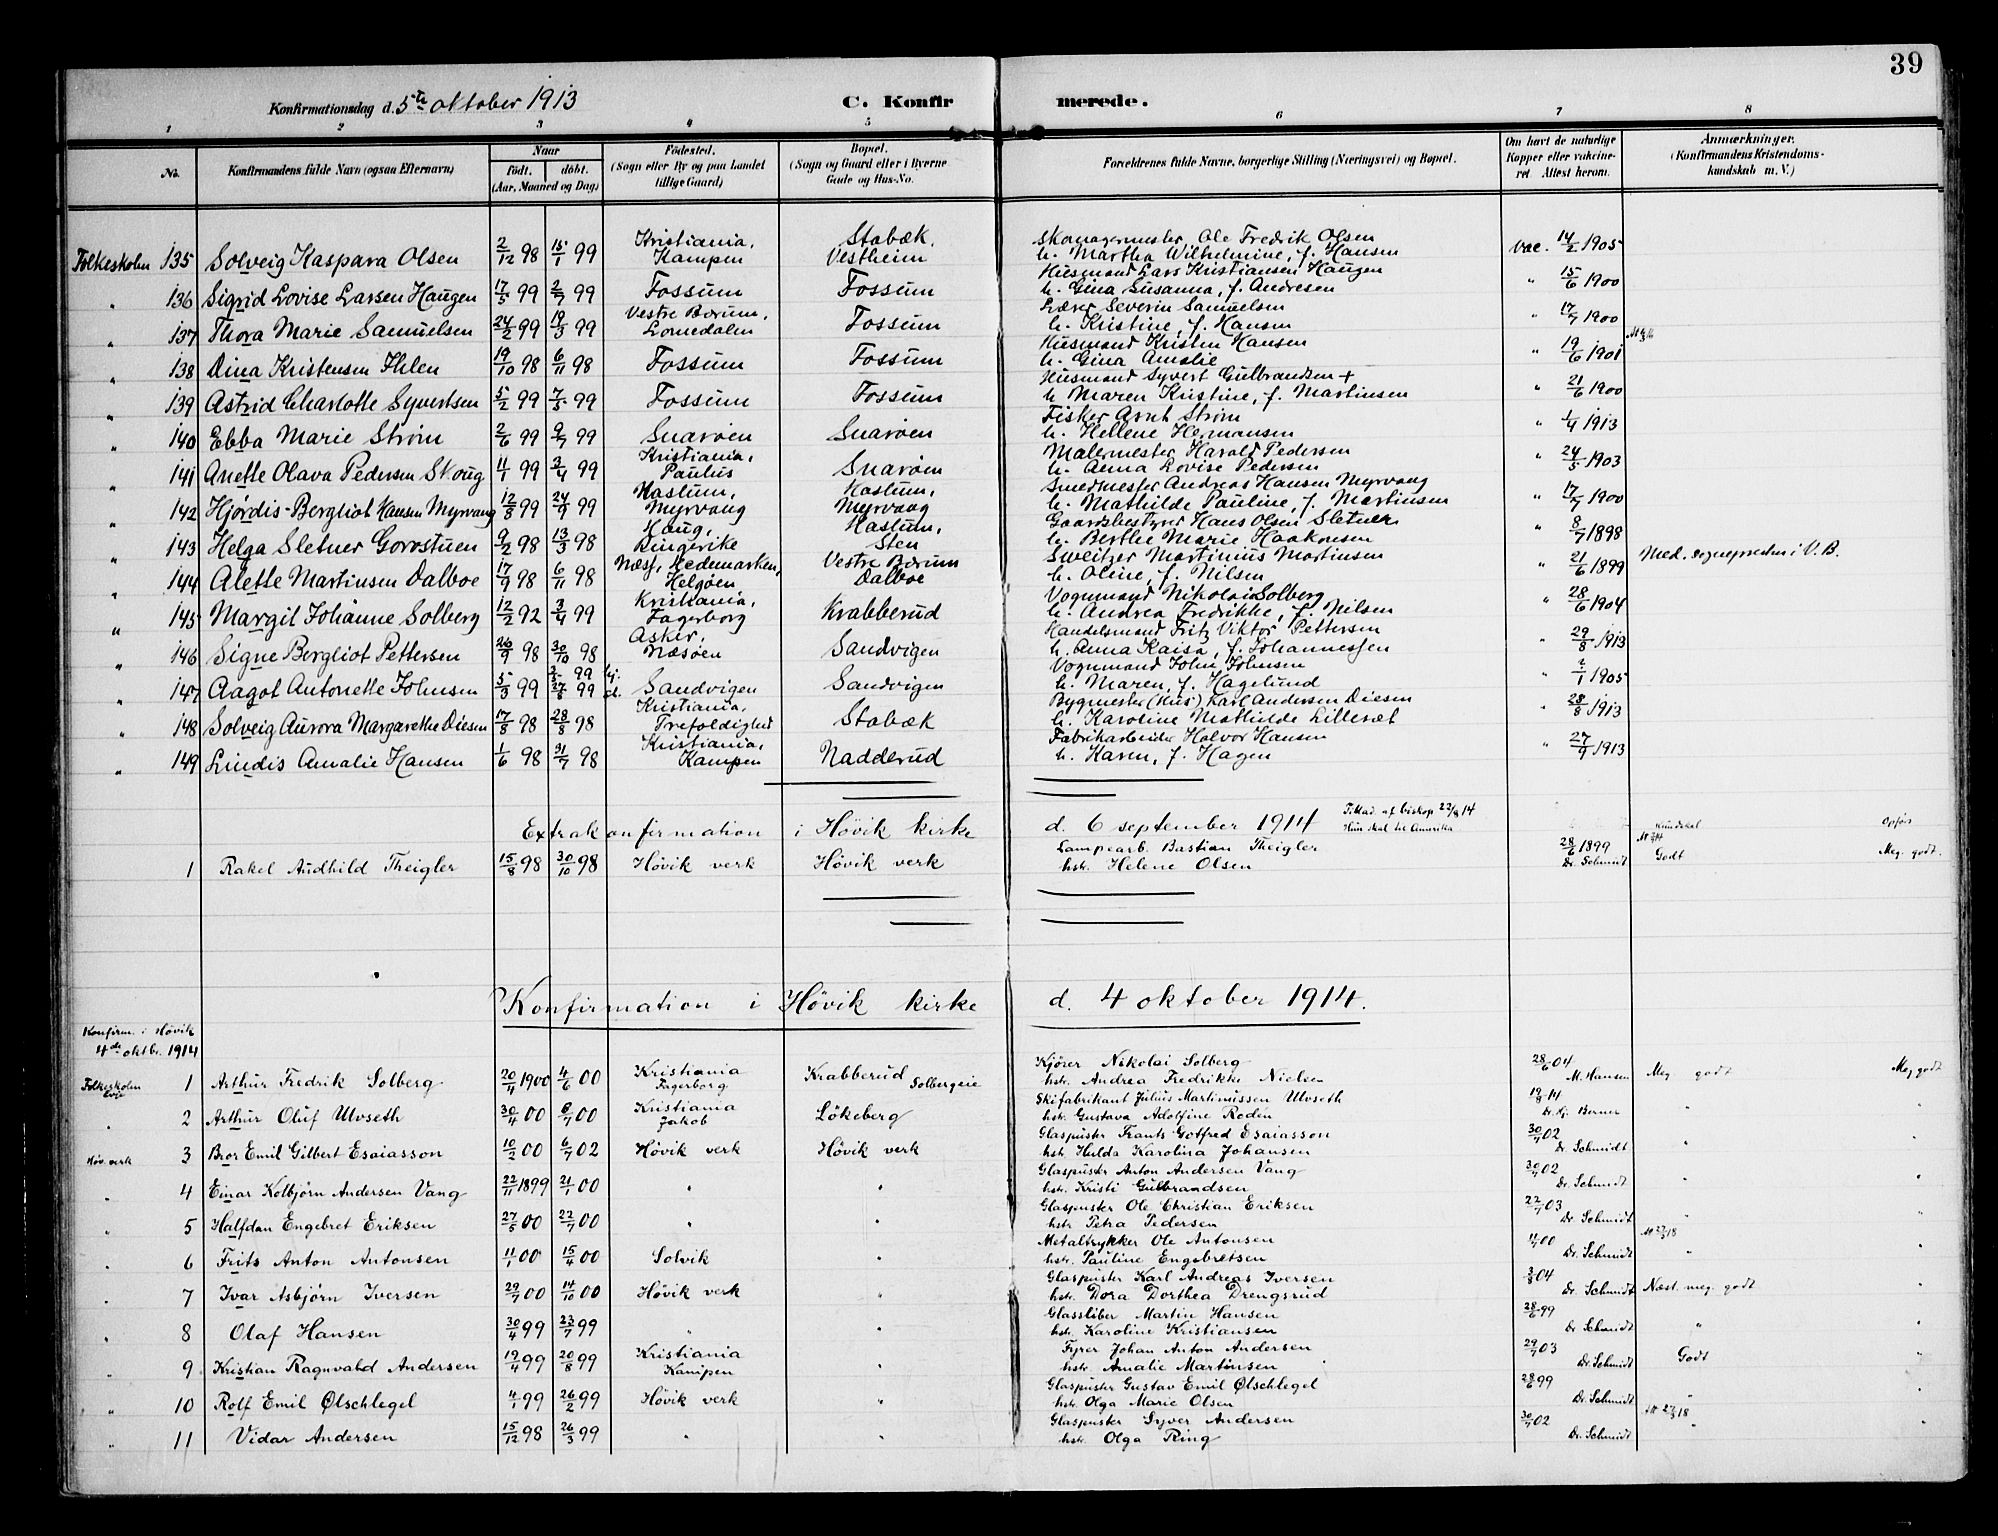 39
Konfirmationsdag d. 5te oktober 1913 C. Konfirmerede.
1 2 3 4 5 6 7 8
No. Konfirmandens fulde Navn (ogsaa Efternavn) Naar født. døbt. (Aar, Maaned og Dag) Fødested. (Sogn eller By og paa Landet tillige Gaard) Bopæl. (Sogn og Gaard eller i Byerne Gade og Hus-No. Forældrenes fulde Navne, borgerlige Stilling (Næringsvei) og Bopæl. Om havt de naturlige Kopper eller vaccineret Attest herom. Anmærkninger. (Konfirmandens Kristendomskundskab m. V.)
Folkeskolen 135 Solveig Kaspara Olsen 2/12 98 15/1 99 Kristiania, Kampen Stabæk, Vestheim Skomagermester, Ole Fredrik Olsen h. Martha Wilhelmine, f. Hansen vac. 14/2 1905
" 136 Sigrid Lovise Larsen Haugen 17/5 99 2/7 99 Fossum Fossum Husmand Lars Kristiansen Haugen h. Gina Susanna, f. Andresen " 15/6 1900
" 137 Thora Marie Samuelsen 24/2 99 19/3 99 Vestre Bærum, Lomedalen Fossum Lærer Severin Samuelsen h. Kristine, f. Hansen " 17/7 1900
" 138 Dina Kristensen Ihlen 19/10 98 6/11 98 Fossum Fossum Husmand Kristen Hansen h. Gina Amalie " 19/6 1901
" 139 Astrid Charlotte Syvertsen 5/2 99 7/5 99 Fossum Fossum Husmand Syvert Gulbrandsen + h. Maren Kristine, f. Martinsen " 21/6 1900
" 140 Ebba Marie Strøm 2/6 99 9/7 99 Snarøen Snarøen Fisker Arnt Strøm h. Hellene Hermansen " 1/4 1913
" 141 Anette Olava Pedersen Skoug 4/1 99 3/4 99 Kristiania, Paulus Snarøen Malermester Harald Pedersen h. Anna Lovise Pedersen " 24/5 1903
" 142 Hjørdis-Bergliot Hansen Myrvang 12/8 99 24/9 99 Haslum, Myrvang Haslum, Myrvang Smedmester Andreas Hansen Myrvang h. Mathilde Pauline, f. Martinsen " 17/7 1900
" 143 Helga Sletner Gorostuen 9/2 98 13/3 98 Haug, Ringerike Haslum, Sten Gaardsbestyrer Hans Olsen Sletner h. Berthe Marie Haakonsen " 8/7 1898
" 144 Alette Martinsen Dalboe 17/9 98 6/11 98 Næss, Hedemarken, Helgøen Vestre Bærum Dalboe Sweitzer Martinius Martinsen h. Oline, f. Nilsen " 21/6 1899 Med. sogneprestm i V. B.
" 145 Margit Johanne Solberg 12/2 92 3/4 99 Kristiania, Fagerborg Krabberud Vognmand Nikolai Solberg h. Andrea Fredrikke, f. Nilsen " 28/6 1904
" 146 Signe Bergliot Pettersen 26/9 98 30/10 98 Asker, Næsøen Sandvigen Handelsmand Fritz Viktor Pettersen h. Anna Kaisa, f. Johannessen " 29/8 1913
" 147 Aagot Antonette Johnsen 5/3 99 27/8 99 Sandvigen Sandvigen Vognmand John Johnsen h. Maren, f. Hagelund " 2/1 1905
" 148 Solveig Aurora Margarethe Diesen 17/8 98 28/8 98 Kristiania, Trefoldighed Stabæk Bygmester (Hus) Karl Andersen Diesen h. Karoline Mathilde Lilleræt " 28/8 1913
" 149 Lindis Amalie Hansen 1/6 98 31/7 98 Kristiania, Kampen Nadderud Fabrikarbeider Halvor Hansen h. Karen, f. Hagen " 27/9 1913
Extrakonfirmation i Høvik kirke d. 6 september 1914 Tillad af biskop 22/8 14 Hun skal til Amerika
1 Rakel Audhild Theigler 15/8 98 30/10 98 Høvik verk Høvik verk Lampearb. Bastian Theigler hstr. Helene Olsen 28/6 1899 Dr. Schmidt Kundskab Godt Opførs Meg. godt.
Konfirmation i Høvik kirke d. 4 oktober 1914.
Konfirm. i Høvik 4de oktbr. 1914
Folkeskolen 1 Arthur Fredrik Solberg 20/4 1900 4/6 00 Kristiania Fagerborg Krabberud Solbergeie Kjører Nikolai Solberg hstr. Andrea Fredrikke Nielsen 28/6 04 M. Hansen Meg godt Meg godt
" 2 Arthur Oluf Ulvseth 30/4 00 8/7 00 Kristiania Jakob Løkeberg Skifabrikant Julius Martinussen Ulvseth hstr. Gustava Adolfine Roden 19/8 14 Dr. Kj. Berner " "
Høv. verk 3 Bror Emil Gilbert Esaiasson 10/2 00 6/7 02 Høvik verk Høvik verk Glaspuster Frants Gotfred Esaiasson hstr. Hulda Karolina Johansen 30/7 02 Dr. Schmidt " "
" 4 Einar Kolbjørn Andersen Vang 22/11 1899 21/1 00 " " Glaspuster Anton Andersen Vang hstr. Kristi Gulbrandsen 30/7 02 Dr. Schmidt " "
" 5 Halfdan Engebret Eriksen 27/5 00 22/7 00 " " Glaspuster Ole Christian Eriksen hstr. Petra Pedersen 22/7 03 Dr. Schmidt " "
" 6 Frits Anton Antonsen 11/1 00 15/4 00 Solvik " Metaltrykker Ole Antonsen hstr. Pauline Engebretsen 4/7 00 Dr. Schmidt "
" 7 Ivar Asbjørn Iversen 29/7 00 14/10 00 Høvik verk " Glaspuster Karl Andreas Iversen hstr. Dora Dorthea Drengsrud 3/8 04 Dr. Schmidt Næst. meg. godt "
" 8 Olaf Hansen 30/4 99 23/7 99 " " Glassliber Martin Hansen hstr. Karoline Kristiansen 28/6 99 Dr. Schmidt " "
" 9 Kristian Ragnvald Andersen 19/4 99 20/8 99 Kristiania Kampen " Fyrer Johan Anton Andersen hstr. Amalie Martinsen 29/7 03 Dr. Schmidt Godt "
" 10 Rolf Emil Ølschlegel 4/1 99 26/2 99 Høvik verk " Glaspuster Gustav Emil Ølschlegel hstr. Olga Marie Olsen 28/6 99 Dr. Schmidt " "
" 11 Vidar Andersen 15/12 98 26/3 99 " " Glaspuster Syver Andersen hstr. Olga Ring 30/7 02 Dr. Schmidt " "